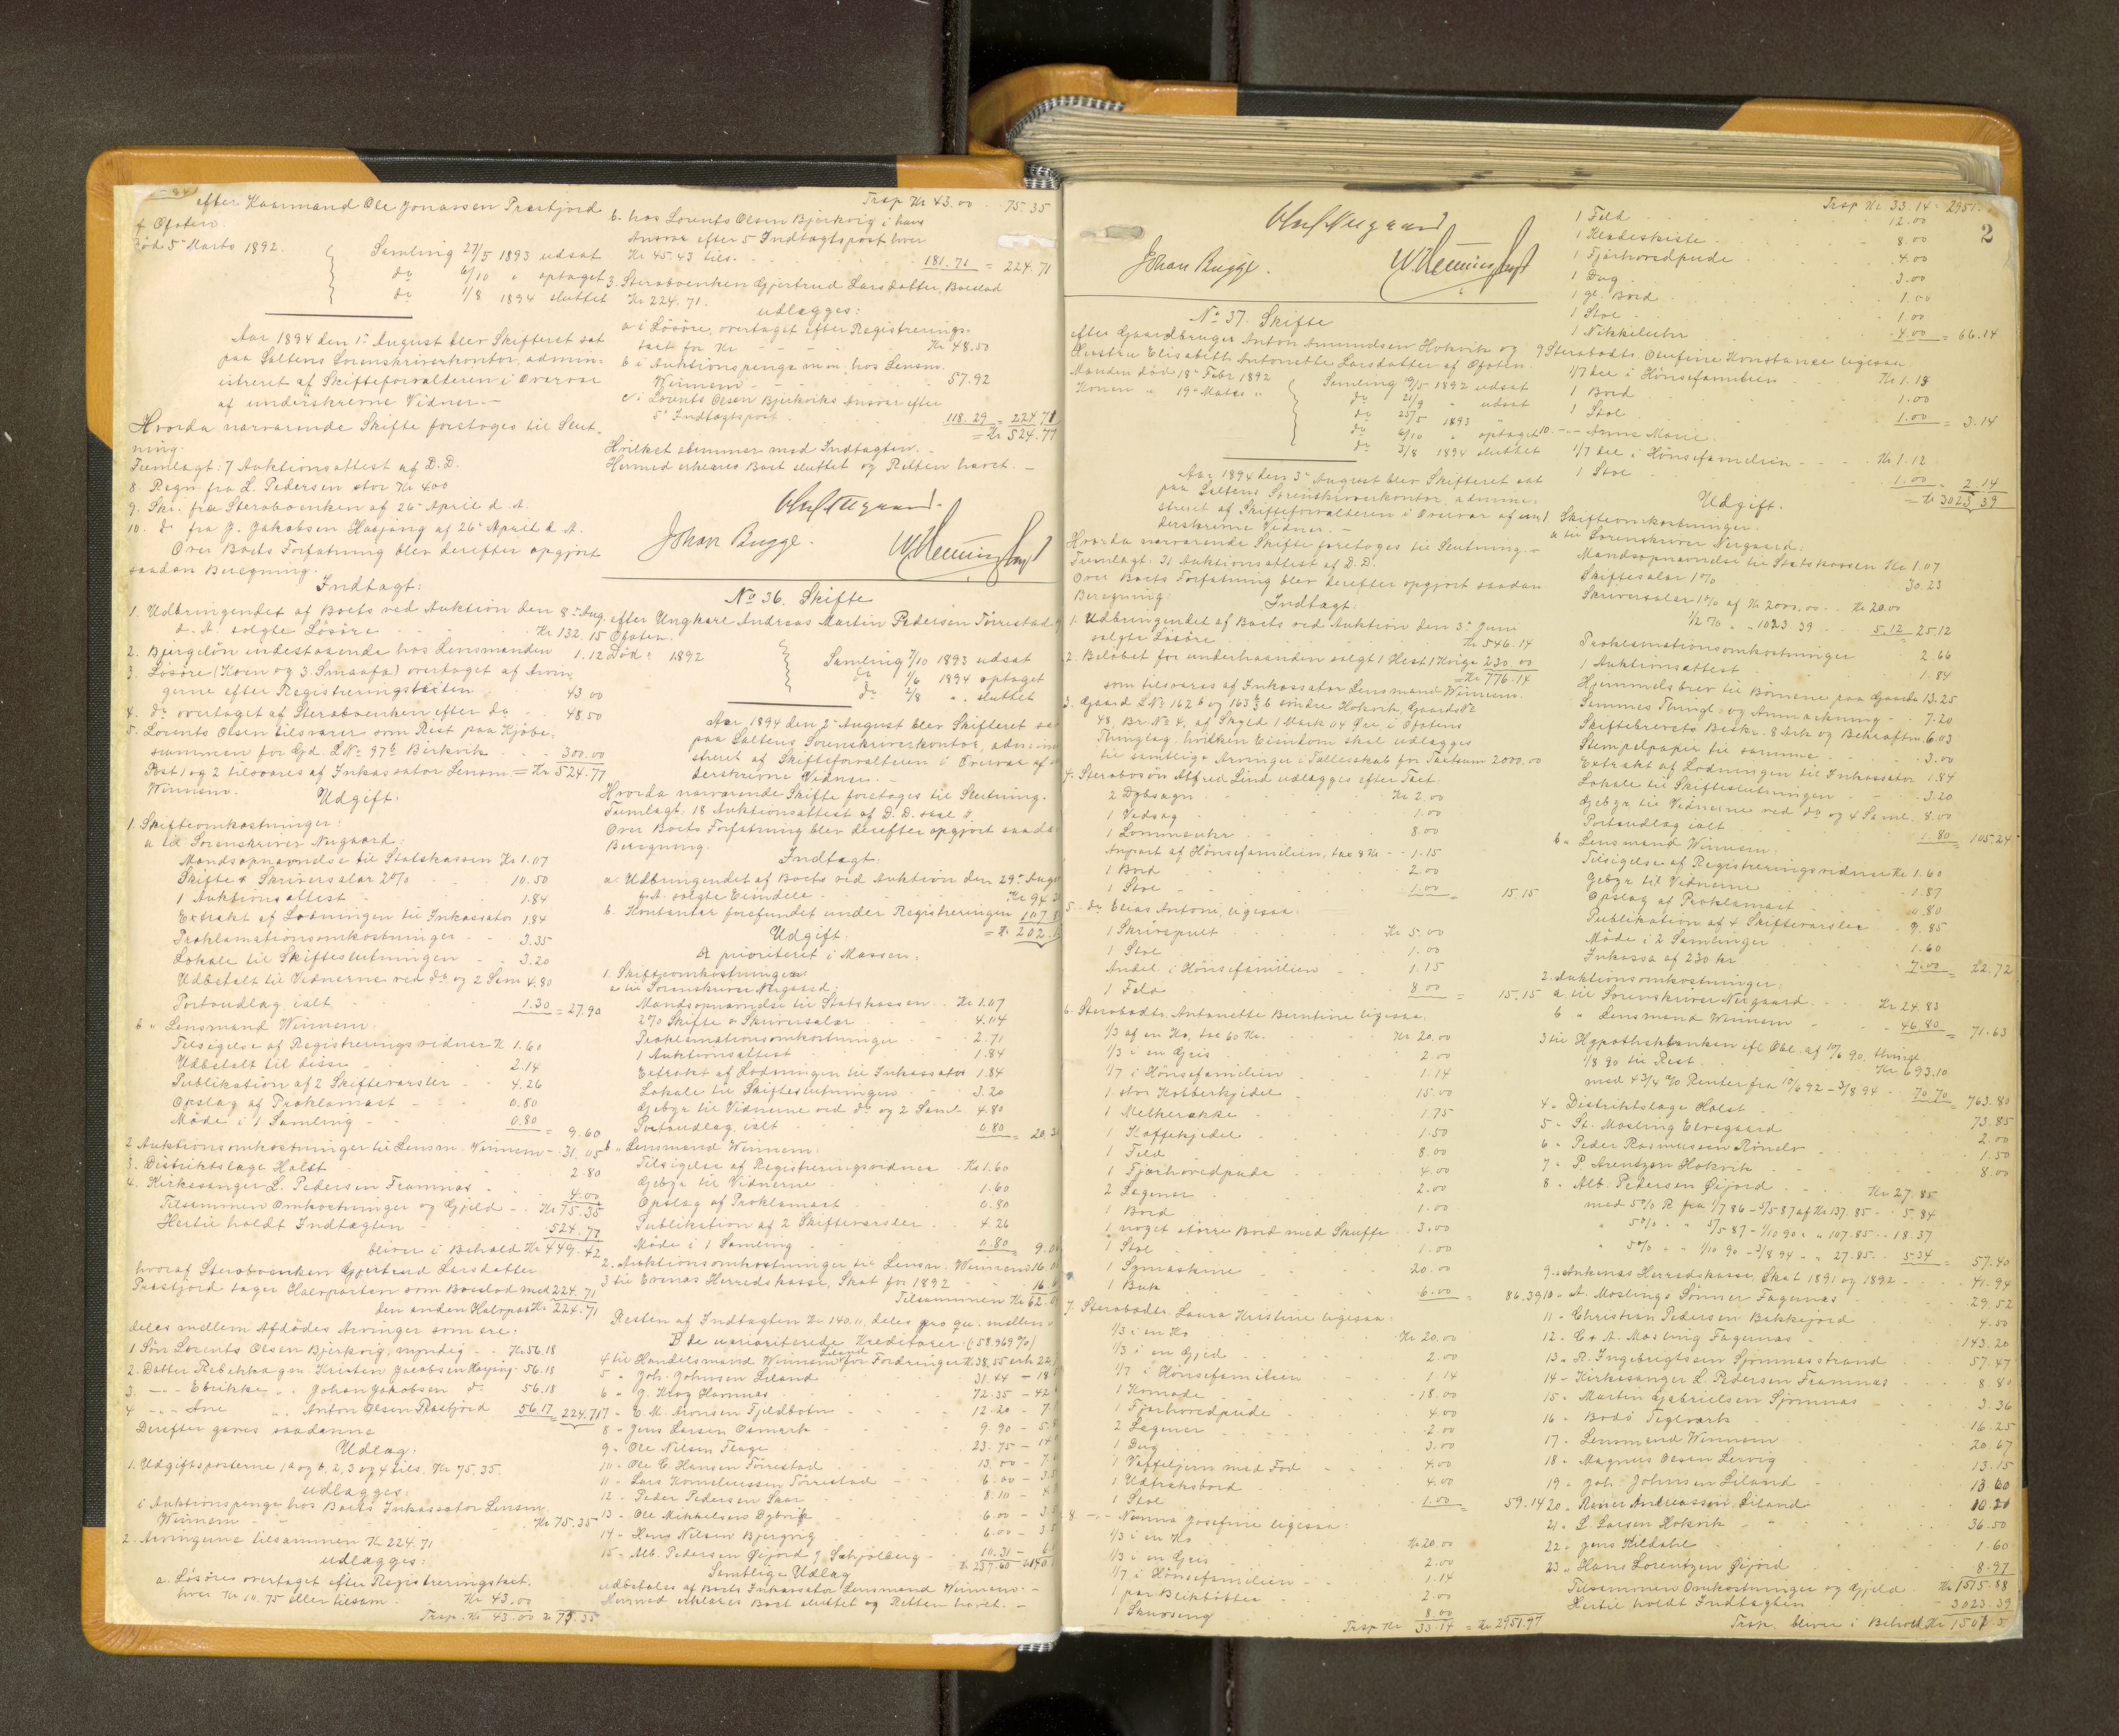 efter Kaarmand Ole Jonassen Præstjord
f Ofoten.
død 5 Marts 1892.
Samling 27/5 1893 udsat
do 6/10 " optaget
do 1/8 1894 sluttet
Aar 1894 den 1. August blev Skifteret sat
paa Saltens Sorenskriverkontor, admin=
istreret af Skifteforvalteren i Overvær
af underskrevne Vidner.-
Hvorda nærværende Skifte foretoges til Slut-
ning.
Fremlagt: 7 Auktionsattest af D.D.
8. Regn. fra L. Pedersen stor Kr 4.00
9. Skr. fra Stervboenken af 26 April d. A.
10. do fra J. Jakobsen Haajang af 26 April d. A.
Over Boets Forfatning blev derefter opgjort
saadan Beregning.
Indtægt:
1. Udbringendet af Boets ved Auktion den 8. Aug.
d. A. solgte Løsøre Kr 132.15
2. Bjergeløn indestaaende hos Lensmanden 1.12
3. Løsøre (Koen og 3 Smaafæ) overtaget af Arvin
gerne efter Registreringstaxten 43.00
4. do overtaget af Stervboenken efter do 48.50
5. Lorents Olsen tilsvarer som Rest paa Kjøbe-
summen for Gd. L No 97b Birkvik 300.00
Post 1 og 2 tilsvares af Inkassator Lensm. = Kr 524.77
Winnem.
Udgift:
1. Skifteomkostninger:
a til Sorenskriver Nergaard:
Mandsopnævnelse til Statskassen Kr 1.07
Skifte & Skriversalær 2% 10.50
1 Auktionsattest 1.84
Extrakt af Lodningen til Inkassator 1.84
Proklamationsomkostninger 3.35
Lokale til Skifteslutningen 3.20
Udbetalt til Vidnerne ved do og 2 Sam 4.80
Portoudlæg ialt 1.30 = 27.90
b " Lensmand Winnem.
Tilsigelse af Registreringsvidner Kr 1.60
Udbetalt til disse 2.14
Publikation af 2 Skiftevarsler 4.26
Opslag af Proklamast 0.80
Møde i 1 Samling 0.80 = 9.60
2. Auktionsomkostninger til Lensm. Winnem 31.05
3. Distriktslæge Holst 2.80
4. Kirkesanger L. Pedersen Framnæs 4.00
Tilsammen Omkostninger og Gjæld Kr 75.35
Hertil holdt Indtægten 524.77
bliver i Behold Kr 449.42
hvoraf Stervboenken Gjertrud Larsdatter
Præstjord tager Halvparten som Boeslod med 224.71
den anden Halvpart Kr 224.71
deles mellem Afdødes Arvinger som ere:
1 Søn Lorents Olsen Bjerkvig, myndig Kr 56.18
2. Datter Rebekka g.m. Kristen Jacobsen Haajang 56.18
3. -"- Ebrikke " Johan Jakobsen do 56.18
4 -"- Ane " Anton Olsen Præstjord 56.17 = 224.71
Derefter gaves saadanne
Udlæg:
1. Udgiftsposterne 1a og b, 2, 3 og 4 tils. Kr 75.35.
udlægges:
i Auktionspenge hos Boets Inkassator Lensm.
Winnem Kr 75.35
2. Arvingerne tilsammen Kr 224.71
udlægges:
a. Løsøre overtaget efter Registreringstaxt.
hver Kr 10.75 eller tilsam. Kr 43.00
Trsp. Kr 43.00 Kr 75.35
Trsp Kr 43.00 75.35
b. hos Lorents Olsen Bjerkvig i hans
Ansvar efter 5 Indtægtspost hver
Kr 45.43 tils. 181.71 = 224.71
3. Stervboenken Gjertrud Larsdatter, Boeslod
Kr 224.71.
udlægges:
a i Løsøre, overtaget efter Registrerings-
taxt for Kr Kr 48.50
b i Auktionspenge m. m. hos Lensm.
Winnem 57.92
c i Lorents Olsen Bjerkviks Ansvar efter
5 Indtægtspost 118.29 = 224.71
= Kr 524.77
Hvilket stemmer med Indtægten.
Hermed erklæres Boet sluttet og Retten hævet.-
Oluf Nergaard.
Johan Bugge.
No 36. Skifte
efter Ungkarl Andreas Martin Pedersen Tørrestad
Ofoten.
Død 1892
Samling 7/10 1893 udsat
do 1/6 1894 optaget
do 2/8 " sluttet
Aar 1894 den 2 August blev Skifteret sat
paa Saltens Sorenskriverkontor, admini
streret af Skifteforvalteren i Overvær af
derskrevne Vidner.-
Hvorda nærværende Skifte foretoges til Slutning.
Fremlagt: 18 Auktionsattest af D.D.
Over Boets Forfatning blev derefter opgjort saada
Beregning.
Indtægt:
a. Udbringendet af Boets ved Auktion den 29. Aug
solgte Eiendele Kr 94
b. Kontanter forefundet under Registreringen 107
= Kr 202
Udgift.
A prioriteret i Massen:
1. Skifteomkostninger
a til Sorenskriver Nergaard:
Mandsopnævnelse til Statskassen Kr 1.07
2% Skifte & Skriversalær 4.04
Proklamationsomkostninger 2.71
1 Auktionsattest 1.84
Extrakt af Lodningen til Inkassator 1.84
Lokale til Skifteslutningen 3.20
Gebyr til Vidnerne ved do og 2 Saml 4.80
Portoudlæg ialt 0.80 = 20.3
b " Lensmand Winnem:
Tilsigelse af Registreringsvidner Kr 1.60
Gebyr til Vidnerne 1.60
Opslag af Proklamast 0.80
Publikation af 2 Skiftevarsler 4.26
Møde i 1 Samling 0.80 = 9.0
2. Auktionsomkostninger til Lensm. Winnem 16.0
3 til Evenæs Herredskasse, Skat for 1892 16
Tilsammen Kr 62.0
Resten af Indtægten Kr 140.11, deles pro qu. mellem
B de uprioriterede Kreditorer (58.969%)
4 til Handelsmand Winnem Liland for Fordringer Kr 38.55 erh 22
5 " Joh. Johnsen Liland 31.44 - 18
6 " J. Klog Hamnæs 72.35 - 42
7 - E. M. Aronsen Fjeldbotn 12.20 - 7
8 - Jens Larsen Osmark 9.90 - 5.8
9 - Ole Nilsen Flage 23.75 - 14
10 - Ole C. Hansen Tørrestad 13.00 - 7
11 - Lars Korneliussen Tørrestad 6.00 - 3.5
12 - Peder Pedersen Skar 8.10 - 4
13 - Ole Mikkelsens Dybvig 6.00 - 3.5
14 - Hans Nilsen Bjergvig 6.00 - 3.5
15 - Alb. Pedersen Øijord 10.31 - 6
Kr 237.60 Kr 140
Samtlige Udlæg
udbetales af Boets Inkassator Lensmand Winnem.-
Hermed erklæres Boet sluttet og Retten hævet.-
Oluf Nergaard
Johan Bugge.
No 37. Skifte
efter Gaardbruger Anton Amundsen Hokvik og
Hustru Elisabeth Antonette Larsdatter af Ofoten.
Manden død 18 Febr 1892
Konen " 19 Marts "
Samling 19/5 1892 udsat
do 21/9 " udsat
do 25/5 1893 "
do 6/10 " optaget
do 3/8 1894 sluttet
Aar 1894 den 3 August blev Skifteret sat
paa Saltens Sorenskriverkontor, admini-
streret af Skifteforvalteren i Overvær af un
derskrevne Vidner.-
Hvorda nærværende Skifte foretoges til Slutning.-
Fremlagt: 31 Auktionsattest af D.D.
Over Boets Forfatning blev derefter opgjort saadan
Beregning:
Indtægt:
1. Udbringendet af Boets ved Auktion den 3. Juni
solgte Løsøre Kr 546.14
2. Beløbet for underhaanden solgt 1 Hest 1 Kvige 230.00
= Kr 776.14
som tilsvares af Inkassator Lensmand Winnem.
3. Gaard L No 162b og 163b søndre Hokvik, Gaards No
48, Br. No 4, af Skyld 1 Mark 04 Øre, i Ofotens
Thinglag, hvilken Eiendom skal udlægges
til samtlige Arvinger i Fællesskab for Taxtsum 2000.00
4. Stervbosøn Alfred Lind udlægges efter Taxt.
2 Dybsagn Kr 2.00
1 Vedsag 1.00
1 Lommeuhr 8.00
Anpart af Hønsefamilien, tax 8 Kr 1.15
1 Bord 2.00
1 Stol 1.00 = 15.15
5. do Elias Antoni, ligesaa:
1 Skrivepult Kr 5.00
1 Stol 1.00
Andel i Hønsefamilien 1.15
1 Feld 8.00 = 15.15
6. Stervbodtr. Antonette Berntine ligesaa:
1/3 af en Ko, tax 60 Kr. Kr 20.00
1/3 i en Gris 2.00
1/7 i Hønsefamilien 1.14
1 stor Kobberkjedel 15.00
1 Melkerække 1.75
1 Kaffekjedel 1.50
1 Feld 8.00
1 Fjærhovedpude 4.00
2 Lagener 2.00
1 Bord 1.00
1 noget større Bord med Skuffe 3.00
1 Stol 1.00
1 Symaskine 20.00
1 Buk 6.00 = 86.39
7. Stervbodtr. Laura Kristine ligesaa:
1/3 i en Ko Kr 20.00
1/3 i en Gjed 2.00
1/7 i Hønsefamilien 1.14
1 Komode 18.00
1 Fjærhovedpude 4.00
2 Lagener 2.00
1 Dug 3.00
1 Vaffeljern med Fod 4.00
1 Udtræksbord 4.00
1 Stol 1.00 = 59.14
8 -"- Nanna Josefine ligesaa:
1/3 i en Ko Kr 20.00
1/3 i en Gris 2.00
1/7 i Hønsefamilien 1.14
1 par Blikbøtter 2.00
1 Skruseng 8.00
Trsp Kr 33.14 = Kr 2951.97
Trsp Kr 33.14 - 2951.
2
1 Feld 12.00
1 Klædeskiste 8.00
1 Fjærhovedpude 4.00
1 Dug 3.00
1 gl. Bord 1.00
1 Stol 1.00
1 Nikkeluhr 4.00 = 66.14
9 Stervbodtr. Olufine Konstance ligesaa
1/7 del i Hønsefamilien Kr 1.18
1 Bord 1.00
1 Stol 1.00 = 3.14
10. -"- Anne Marie.
1/7 del i Hønsefamilien Kr 1.12
1 Stol 1.00 = 2.14
= Kr 3023.39
Udgift.
1 Skifteomkostninger.
a til Sorenskriver Nergaard:
Mandsopnævnelse til Statskassen Kr 1.07
Skiftesalær 1% 30.23
Skriversalær 1% af Kr 2000.00 Kr 20.00
1/2 % " " 1023.39 5.12 = 25.12
Proklamationsomkostninger 2.66
1 Auktionsattest 1.84
Hjemmelsbrev til Børnene paa Gaarden 13.25
Sammes Thingl. og Anmærkning 7.20
Skiftebrevets Beskr. 8 Ark og Bekræftn. 6.03
Stempelpapir til samme 3.00
Extrakt af Lodningen til Inkassator 1.84
Lokale til Skifteslutningen 3.20
Gebyr til Vidnerne ved do og 4 Saml. 8.00
Portoudlæg ialt 1.80 = 105.24
b " Lensmand Winnem:
Tilsigelse af Registreringsvidner Kr 1.60
Gebyr til Vidnerne 1.87
Opslag af Proklamast 0.80
Publikation af 4 Skiftevarsler 9.85
Møde i 2 Samlinger 1.60
Inkasso af 230 kr 7.00 = 22.72
2. Auktionsomkostninger:
a til Sorenskriver Nergaard Kr 24.83
b " Lensmand Winnem 46.80 = 71.63
3 til Hypothekbanken ifl. Obl. af 10/6 90, thingl
1/8 90 til Rest Kr 693.10
med 4 3/4 % Renter fra 10/6 92 - 3/8 94 70.70 = 763.80
4 - Distriktslæge Holst 73.85
5 - St. Mosling Elvegaard 2.00
6 - Peder Rasmussen Rønelv 1.50
7 - P. Arentzen Hokvik 8.00
8 - Alb. Pedersen Øijord Kr 27.85
med 5% R fra 1/7 86 - 5/5 87 af Kr 137.85 5.84
" 5% " " 5/5 87 - 1/10 90 " " 107.85 18.37
" 5% " " 1/10 90 - 3/8 94 " " 27.85 5.34 = 57.40
9 - Ankenes Herredskasse, Skat 1891 og 1892 41.94
10 - A. Moslings Sønner Fagernæs 29.52
11 - Christian Pedersen Bakkejord 4.50
12 - C & A. Mosling Fagernæs 143.20
13 - R. Ingebrigtsen Sjomnæsstrand 57.47
14 - Kirkesanger L. Pedersen Framnæs 8.80
15 - Martin Gabrielsen Sjomnæs 3.36
16 - Bodø Teglværk 16.25
17 - Lensmand Winnem 20.67
18 - Magnus Olsen Lervig 13.15
19 - Joh. Johnsen Liland 13.60
20 - Reiner Andreassen Liland 10.20
21 - L. Larsen Hokvik 36.50
22 - Jens Kildahl 1.60
23 - Hans Lorentzen Øijord 8.97
Tilsammen Omkostninger og Gjæld Kr 1515.88
Hertil holdt Indtægten 3023.39
Trsp. bliver i Behold Kr 1507.5